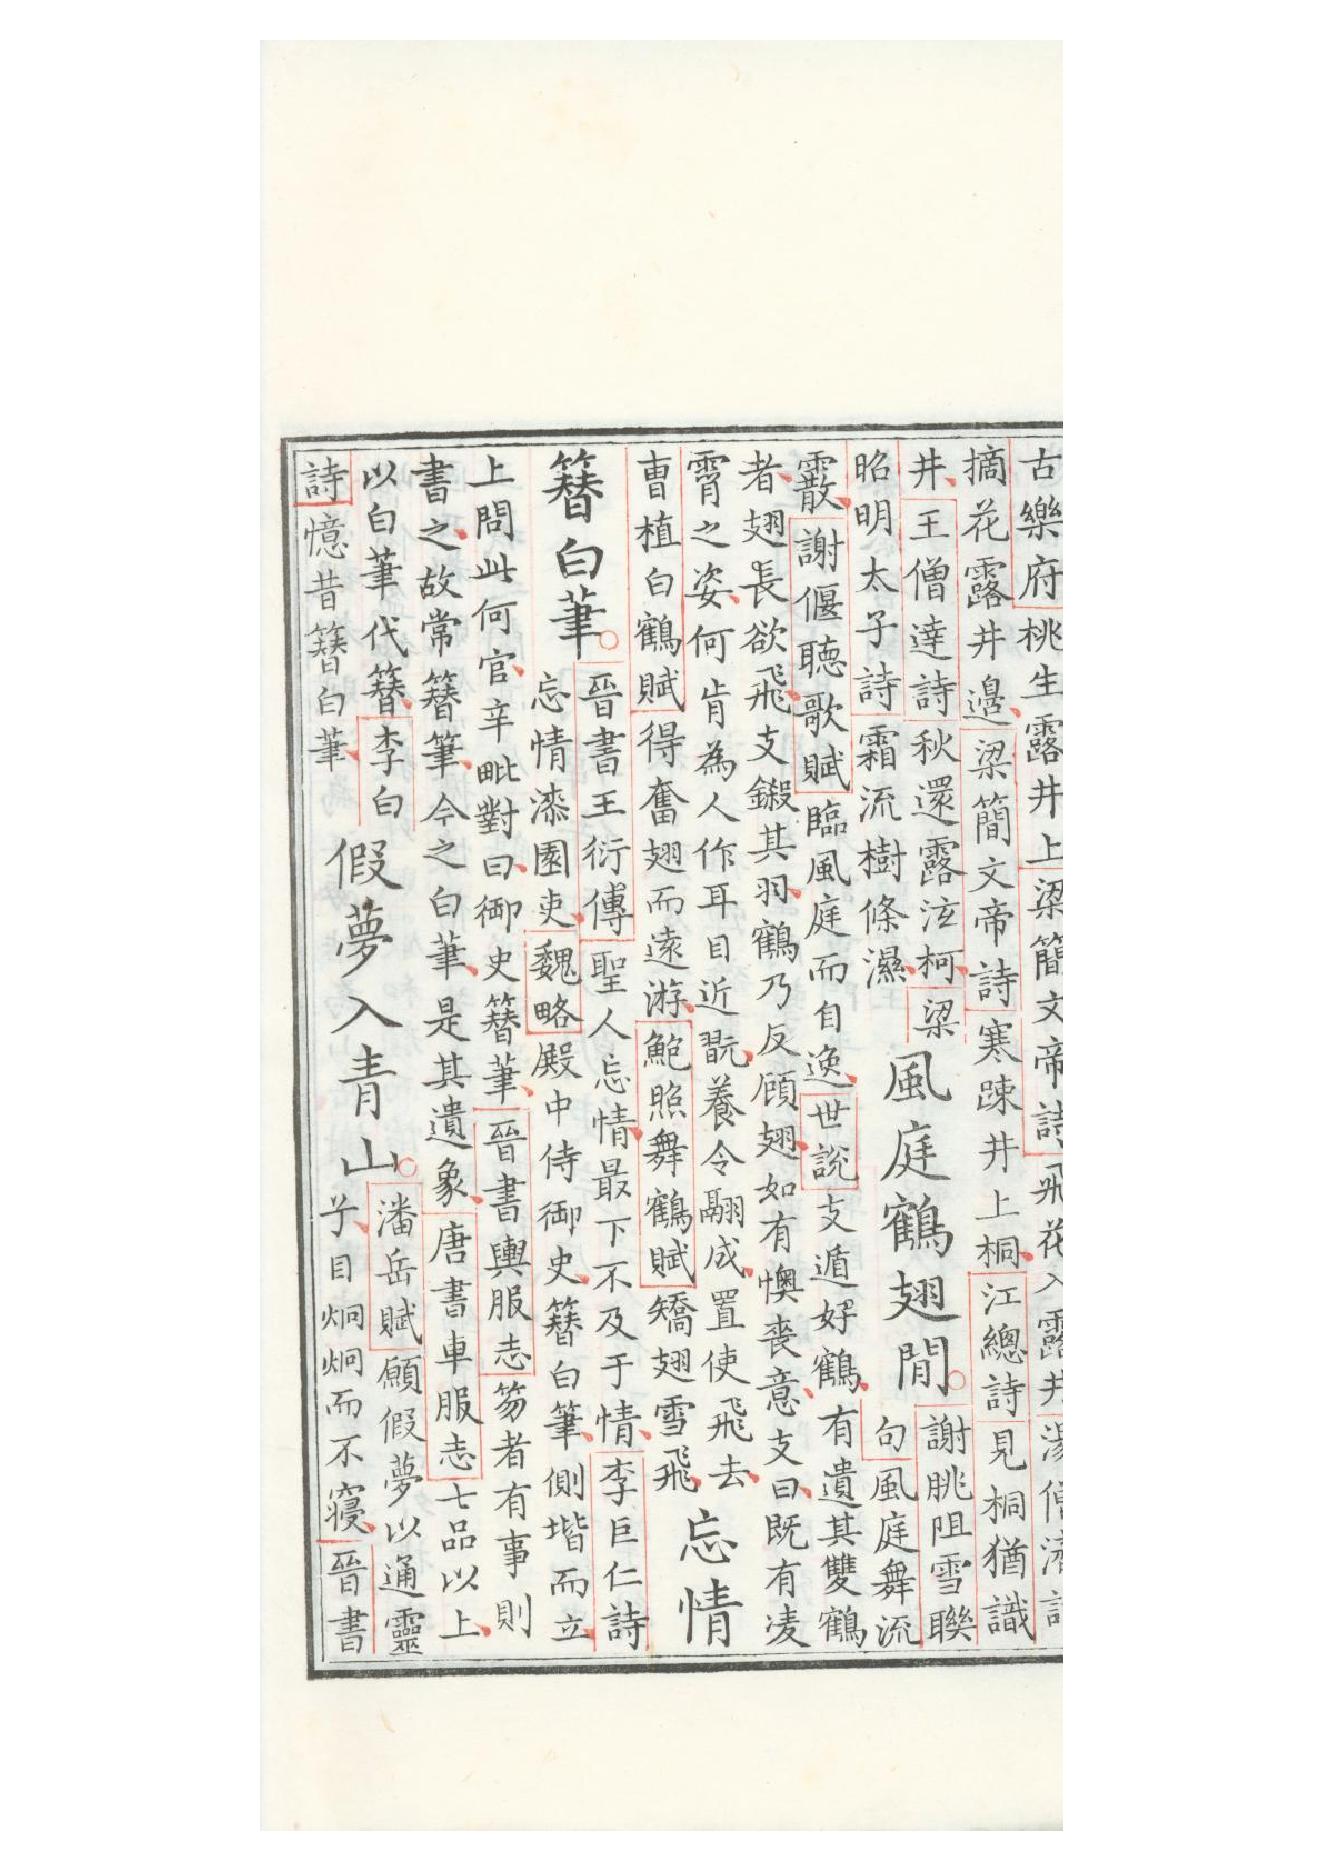 古樂府桃生露井上梁簡文帝詩飛花入露井湯僧濟詩
摘花露井邊梁簡文帝詩寒踈井上桐江總詩見桐猶識
井王僧達詩秋還露泫柯梁
昭明太子詩霜流樹條濕
風庭鶴翅閒
謝朓阻雪聯
句風庭舞流
霰謝偃聽歌賦臨風庭而自逸世說支遁好鶴有遺其雙鶴
者翅長欲飛支鎩其羽鶴乃反顧翅如有懊喪意支曰既有凌
霄之姿何肯為人作耳目近翫養令翮成置使飛去
曹植白鶴賦得奮翅而遠游鮑照舞鶴賦矯翅雪飛
忘情
簪白筆
晉書王衍傳聖人忘情最下不及于情李巨仁詩
忘情漆園吏魏略殿中侍御史簪白筆側堦而立
上問此何官辛毗對曰御史簪筆晉書輿服志笏者有事則
書之故常簪筆今之白筆是其遺象唐書車服志七品以上
以白筆代簪李白
詩憶昔簪白筆
假夢入青山
潘岳賦願假夢以通靈
兮目炯炯而不寢晉書